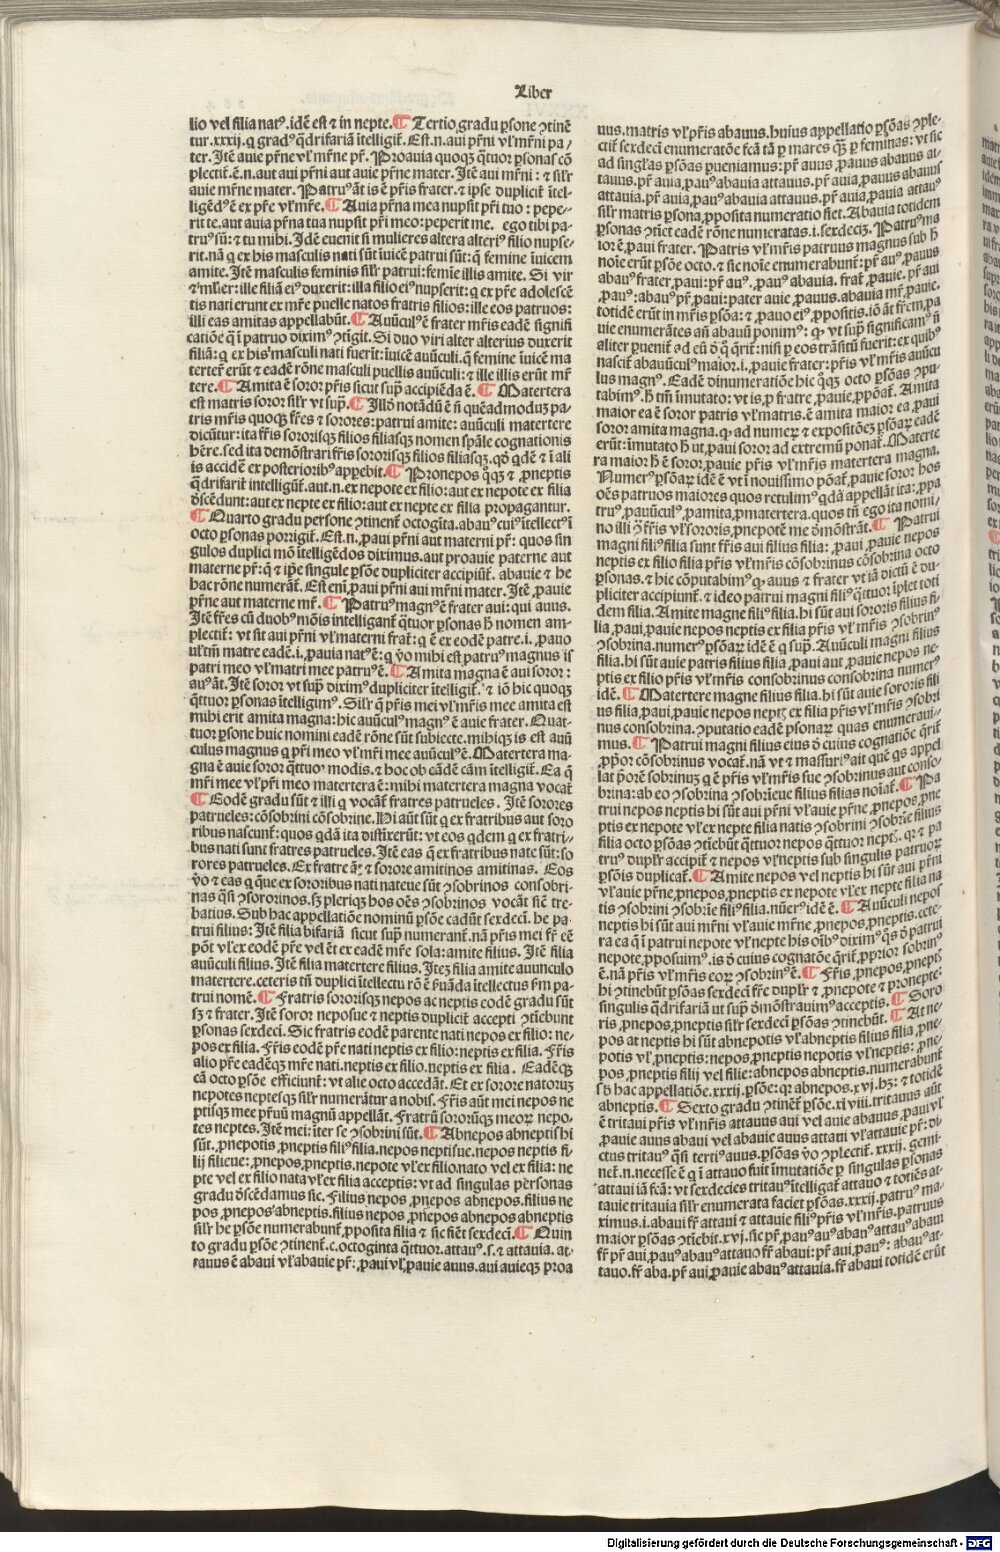 Liber
lio vel filia natꝰ. idē est ⁊ in nepte. ¶ Tertio gradu ꝑsone ↄtinē
tur. xxxij. q gradꝰ q̄drifariā ītelligit̄. Est .n. aui pr̄ni vl' mr̄ni pa/
ter. Itē auie pr̄ne vl' mr̄ne pr̄. Proauia quoqȝ q̄tuor ꝑsonas cō
plectit̄. ē.n. aut aui pr̄ni aut auie pr̄ne mater. Itē aui mr̄ni : ⁊ sil'r
auie mr̄ne mater. Patruꝰ āt is ē pr̄is frater. ⁊ ipse duplicit̄ ītel-
ligēdꝰ ē ex pr̄e vl' mr̄e. ¶ Auia pr̄na mea nupsit pr̄i tuo : pepe/
rit te. aut auia pr̄na tua nupsit pr̄i meo: peperit me. ego tibi pa-
truꝰ sū: ⁊ tu mihi. Idē euenit si mulieres altera alteriꝰ filio nupse-
rit. nā q ex his masculi nati sūt īuicē patrui sūt: q̄ femine īuicem
amite. Itē masculis feminis sil'r patrui: femīe illis amite. Si vir
⁊ ml'ier: ille filiā eiꝰ duxerit: illa filio eiꝰ nupserit: q ex pr̄e adolescē
tis nati erunt ex mr̄e puelle natos fratris filios: ille eos patruos:
illi eas amitas appellabūt. ¶ Auūculꝰ ē frater mr̄is eadē signifi
catiōe q̄ ī patruo diximꝰ ↄtigit. Si duo viri alter alterius duxerit
filiā: q ex his masculi nati fuerīt: īuicē auūculi. q̄ femine īuicē ma
terter̄ erūt ⁊ eadē rōne masculi puellis auūculi: ⁊ ille illis erūt mr̄
tere. ¶ Amita ē soror pr̄is sicut supͣ accipiēda ē. ¶ Matertera
est matris soror sil'r vt supͣ. ¶ Illō notādū ē ꝙ quēadmodū pa-
tris mr̄is quoqȝ fr̄es ⁊ sorores: patrui amite: auūculi matertere
dicūtur: ita fr̄is sororisqȝ filios filiasqȝ nomen spāle cognationis
hr̄e. sed ita demōstrari fr̄is sororisqȝ filios filiasqȝ. qd̄ qdē ⁊ ī ali
is accidē ex posterioribꝰ apꝑebit. ¶ Pronepos qqȝ ⁊ ꝓneptis
q̄drifarit̄ intelligūt̄. aut .n. ex nepote ex filio: aut ex nepote ex filia
dēscēdunt: aut ex nepte ex filio: aut ex nepte ex filia propagantur.
¶ Quarto gradu persone ↄtinent̄ octogīta. abauꝰ cuiꝰ ītellectꝰ ī
octo ꝑsonas porrigit̄. Est .n. ꝓaui pr̄ni aut materni pr̄: quos sin
gulos duplici mō ītelligēdos diximus. aut proauie paterne aut
materne pr̄: q̄ ⁊ ip̄e singule ꝑsōe dupliciter accipiūt̄. abauie ⁊ he
hac rōne numerāt̄. Est eni ꝓaui pr̄ni aui mr̄ni mater. Itē ꝓauie
pr̄ne aut materne mr̄. ¶ Patruꝰ magnꝰ ē frater aui: qui auus.
Itē fr̄es cū duobꝰ mōis intelligant̄ q̄tuor ꝑsonas h̄ nomen am-
plectit̄: vt sit aui pr̄ni vl' materni frat̄: q ē ex eodē patre .i. ꝓauo
vl' tm̄ matre eadē .i. ꝓauia natꝰ ē: q v̄o mihi est patruꝰ magnus is
patri meo vl' matri mee patruꝰ ē. ¶ Amita magna ē aui soror :
auꝰ āt. Itē soror vt supͣ diximꝰ dupliciter ītelligit̄. ⁊ iō hic quoqȝ
q̄ttuor ꝑsonas ītelligimꝰ. Sil'r q̄ pr̄is mei vl' mr̄is mee amita est
mihi erit amita magna: hic auūculꝰ magnꝰ ē auie frater. Quat-
tuor ꝑsone huic nomini eadē rōne sūt subiecte. mihiqȝ is est auū
culus magnus q pr̄i meo vl' mr̄i mee auūculꝰ ē. Matertera ma-
gna ē auie soror q̄ttuoꝰ modis. ⁊ hoc ob eādē cām ītelligit̄. Ea q̄
mr̄i mee vl' pr̄i meo matertera ē: mihi matertera magna vocat̄
¶ Eodē gradu sūt ⁊ illi q vocāt̄ fratres patrueles. Itē sorores
patrueles: cōsobrini cōsobrine. Hi aūt sūt q ex fratribus aut soro
ribus nascunt̄: quos qdā ita distīxerūt: vt eos qdem q ex fratri/
bus nati sunt fratres patrueles. Itē eas q̄ ex fratribus nate sūt: so
rores patrueles. Ex fratre āt ⁊ sorore amitinos amitinas. Eos
v̄o ⁊ eas q que ex sororibus nati nateue sūt ↄsobrinos consobri-
nas q̄si ↄsororinos. sȝ pleriqȝ hos oēs ↄsobrinos vocāt sic̄ tre-
batius. Sub hac appellatiōe nominū ꝑsōe cadūt sexdeci. he pa-
trui filius: Itē filia bifariā sicut supͣ numerant̄. nā pr̄is mei fr̄ cē
pōt vl' ex eodē pr̄e vel ēt ex eadē mr̄e sola: amite filius. Itē filia
auūculi filius. Itē filia matertere filius. Itez filia amite auunculo
matertere. ceteris tn̄ duplici ītellectu rō ē ẜuāda ītellectus ẜm pa-
trui nomē. ¶ Fratris sororisqȝ nepos ac neptis eodē gradu sūt
sȝ ⁊ frater. Itē soror neposue ⁊ neptis duplicit̄ accepti ↄtiebunt
ꝑsonas sexdeci. Sic fratris eodē parente nati nepos ex filio: ne-
pos ex filia. Fr̄is eodē pr̄e nati neptis ex filio: neptis ex filia. Fr̄is
alio pr̄e eadēqȝ mr̄e nati. neptis ex filio. neptis ex filia. Eadēqȝ
cā octo ꝑsōe efficiunt̄: vt alie octo accedāt. Et ex sorore natorum
nepotes neptesqȝ sil'r numerātur a nobis. Fr̄is aūt mei nepos ne
ptisqȝ mee pr̄uū magnū appellāt. Fratrū sororūqȝ meorꝫ nepo-
tes neptes. Itē mei: iter se ↄsobrini sūt. ¶ Abnepos abneptis hi
sūt. ꝓnepotis ꝓneptis filiꝰ filia. nepos neptisue. nepos neptis fi-
lij filieue: ꝓnepos. ꝓneptis. nepote vl' ex filio. nato vel ex filia: ne
pte vel ex filio nata vl' ex filia acceptis: vt ad singulas personas
gradu dēscēdamus sic. Filius nepos ꝓnepos abnepos. filius ne
pos ꝓnepos abneptis. filius nepos ꝓnepos abnepos abneptis
sil'r he ꝑsōe numerabunt̄ ꝓposita filia ⁊ sic fiēt sexdeci. ¶ Quin
to gradu ꝑsōe ↄtinent̄ .c. octoginta q̄ttuor. attauꝰ .s. ⁊ attauia. at-
tauus ē abaui vl' abauie pr̄: ꝓaui vl' ꝓauie auus. aui auieqȝ proa
uus. matris vl' pr̄is abauus. huius appellatio ꝑsōas ↄple-
ctit̄ sexdeci enumeratōe fcā tā ꝑ mares qȝ ꝑ feminas: vt sic
ad singl'as ꝑsōas ꝑueniamus: pr̄ auus ꝓauus abauus at-
tauus. pr̄ auia ꝓauꝰ abauia attauus. pr̄ auia ꝓauus abauus
attauia. pr̄ auia ꝓauꝰ abauia attauus. pr̄ auia ꝓauia attauꝰ
sil'r matris ꝑsona ꝓposita numeratio fiet. Abauia totidem
ꝑsonas ↄtiet eadē rōne numeratas .i. sexdeciȝ. Patruꝰ ma
ior ē ꝓaui frater. Patris vl' mr̄is patruus magnus sub h̄
noīe erūt ꝑsōe octo. ⁊ sic noīe enumerabunt̄: pr̄ auꝰ ꝓauus
abauꝰ frater ꝓaui: pr̄ auꝰ. ꝓauꝰ abauia. frat̄ ꝓauie. pr̄ aui
ꝓauꝰ: abauꝰ pr̄ ꝓaui: pater auie ꝓauus. abauia mr̄ ꝓauie.
totidē erūt in mr̄is ꝑsōa: ⁊ ꝓauo eiꝰ ꝓpositis. iō āt fr̄em ꝓa
uie enumerātes añ abauū ponimꝰ: ꝙ vt supͣ significamꝰ ñ
aliter ꝑuenit̄ ad eū ō q̄ qrit̄: nisi ꝑ eos trāsitū fuerit: ex quibꝰ
nascit̄ abauūculꝰ maior .i. ꝓauie frater: pr̄is vl' mr̄is auūcu
lus magnꝰ. Eadē dinumeratiōe hic qqȝ octo ꝑsōas ↄpu-
tabimꝰ. h̄ tm̄ īmutato: vt is. ꝑ fratre ꝓauie. ꝓpōat̄. Amita
maior ea ē soror patris vl' matris. ē amita maior ea ꝓaui
soror amita magna. ꝙ ad numerꝫ ⁊ expositōeȝ ꝑsōarꝫ eadē
erūt: īmutato h̄ ut ꝓaui soror ad extremū ponat̄. Materte
ra maior h̄ ē soror ꝓauie pr̄is vl' mr̄is matertera magna.
Numerꝰ ꝑsōarꝫ idē ē vt ī nouissimo pōat̄ ꝓauie soror hos
oēs patruos maiores quos retulimꝰ qdā appellāt ita: ꝓpa
truꝰ ꝓauūculꝰ ꝓamita ꝓmatertera. quos tñ ego ita nomi/
no illi ȳ fr̄is vl' sororis ꝓnepotē me dēmōstrāt. ¶ Patrui
magni filiꝰ filia sunt fr̄is aui filius filia: ꝓaui ꝓauie nepos
neptis ex filio filia pr̄is vl' mr̄is cōsobrinus cōsobrina octo
ꝑsonas. ⁊ hic cōputabimꝰ ꝙ auus ⁊ frater vt iā dictū ē du-
pliciter accipiunt̄. ⁊ ideo patrui magni filiꝰ q̄ttuor īplet toti
dem filia. Amite magne filiꝰ filia. hi sūt aui sororis filius fi-
lia ꝓaui ꝓauie nepos neptis ex filia pr̄is vl' mr̄is ↄsobrinꝰ
ↄsobrina. numerꝰ ꝑsōarꝫ idē ē q supͣ. Auūculi magni filius
filia. hi sūt auie patris filius filia ꝓaui aut ꝓauie nepos ne-
ptis ex filio pr̄is vl' mr̄is consobrinus consobrina numerꝰ
idē. ¶ Matertere magne filius filia. hi sūt auie sororis fili
us filia ꝓaui ꝓauie nepos nept; ex filia pr̄is vl' mr̄is ↄsobri
nus consobrina. ↄputatio eadē ꝑsonarꝫ quas enumeraui-
mus. ¶ Patrui magni filius eius ō cuius cognatiōe qrit̄
ꝓpor cōsobrinus vocat̄. nā vt ⁊ massuriꝰ ait quē qs appel
lat ꝓorē sobrinuȝ q ē pr̄is vl' mr̄is sue ↄsobrinus aut conso-
brina: ab eo ↄsobrina ↄsobrieue filius filias noīat̄. ¶ Pa
trui nepos neptis hi sūt aui pr̄ni vl' auie pr̄ne ꝓnepos ꝓne
ptis ex nepote vl' ex nepte filia natis ↄsobrini ↄsobrie filius
filia octo ꝑsōas ↄtiebūt q̄ttuor nepos q̄ttuor nept;. qr ⁊ pa
truꝰ dupl'r accipit̄ ⁊ nepos vl' neptis sub singulis patruorꝫ
ꝑsōis duplicat̄. ¶ Amite nepos vel neptis hi sūt aui pr̄ni
vl' auie pr̄ne ꝓnepos ꝓneptis ex nepote vl' ex nepte filia na
tis ↄsobrini ↄsobrie filiꝰ filia. nūerꝰ idē ē. ¶ Auūculi nepos
neptis hi sūt aui mr̄ni vl' auie mr̄ne ꝓnepos ꝓneptis. cete-
ra ea q̄ ī patrui nepote vl' nepte his oībꝰ diximꝰ q̄s ō patrui
nepote ꝓposuimꝰ. is ō cuius cognatōe qrit̄ ꝓprior sobrinꝰ
ē. nā pr̄is vl' mr̄is eorꝫ ↄsobrinꝰ ē. ¶ Fr̄is ꝓnepos ꝓnept;
hi ↄtinebūt ꝑsōas sexdeci fr̄e dupl'r ⁊ ꝓnepote ⁊ ꝓnepte:
singulis q̄drifariā ut supͣ dēmōstrauimꝰ acceptis. ¶ Soro
ris ꝓnepos ꝓneptis sil'r sexdeci ꝑsōas ↄtinebūt. ¶ At ne-
pos at neptis hi sūt abnepotis vl' abneptis filius filia ꝓne-
potis vl' ꝓneptis: nepos ꝓneptis nepotis vl' neptis: ꝓne-
pos ꝓneptis filij vel filie: abnepos abneptis. numerabunt̄
sȝ hac appellatiōe .xxxij. ꝑsōe: qr abnepos .xvj. hȝ: ⁊ totidē
abneptis. ¶ Sexto gradu ↄtinēt̄ ꝑsōe .xlviii. tritauus aūt
ē tritaui pr̄is vl' mr̄is attauus aui vel auie abauus ꝓaui vl'
ꝓauie auus abaui vel abauie auus attaui vl' attauie pr̄: di-
ctus tritauꝰ q̄si tertiꝰ auus. ꝑsōas v̄o ↄplectit̄ .xxxij. gemi-
net̄ .n. necesse ē q ī attauo fuit īmutatiōe ꝑ singulas ꝑsonas
attaui iā fcā: vt sexdecies tritauꝰ ītelligat̄ attauo ⁊ totiēs at-
tauie tritauia sil'r enumerata faciet ꝑsōas .xxxij. patruꝰ ma-
ximus .i. abaui fr̄ attaui ⁊ attauie filiꝰ pr̄is vl' mr̄is. patruus
maior ꝑsōas ↄtiebit .xvj. sic pr̄ ꝓauꝰ auꝰ abauꝰ attauꝰ abaui
fr̄ pr̄ aui ꝓauꝰ abauꝰ attauo fr̄ abaui: pr̄ aui ꝓauꝰ: abauꝰ at-
tauo. fr̄ aba. pr̄ aui ꝓauie abauꝰ attauia. fr̄ abaui totidē erūt
Digitalisierung gefördert durch die Deutsche Forschungsgemeinschaft - DFG